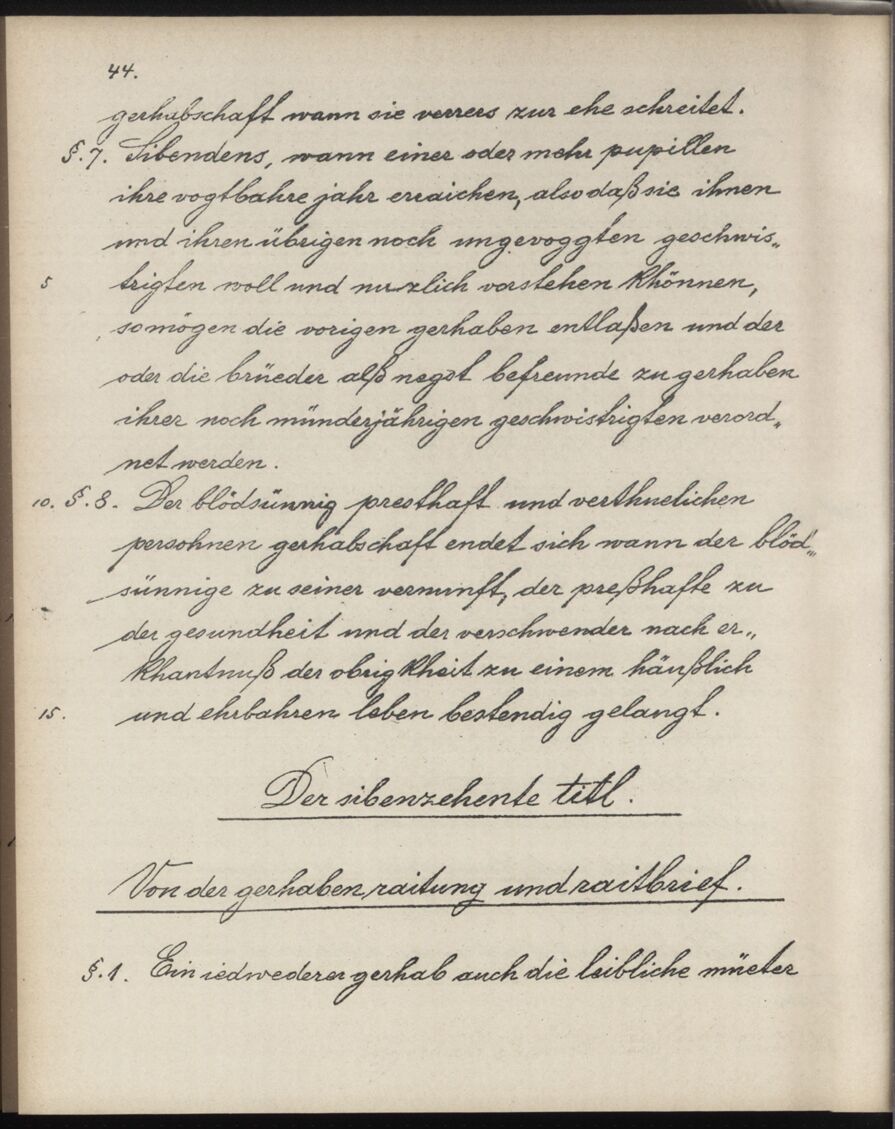 44.
gerhabschaft wann sie verrers zur ehe schreitet.
§.7. Sibendens, wann einer oder mehr pupillen
ihre vogtbahre jahr erraichen, also daß sie ihnen
und ihren übrigen noch ungevoggten geschwis„
5 trigten woll und nuzlich vorstehen khönnen,
so mögen die vorigen gerhaben entlaßen und der
oder die brüeder alß negst befreunde zu gerhaben
ihrer noch münderjährigen geschwistrigten verord„
net werden.
10. §.8. Der blödsünnig presthaft und verthuelichen
persohnen gerhabschaft endet sich wann der blöd„
sünnige zu seiner vernunft, der preßhafte zu
der gesundheit und der verschwender nach er„
khantnuß der obrigkheit zu einem häußlich
15. und ehrbahren leben bestendig gelangt.
Der sibenzehente titl.
Von der gerhaben raitung und raitbrief.
§.1. Ein iedwederer gerhab auch die leibliche müeter